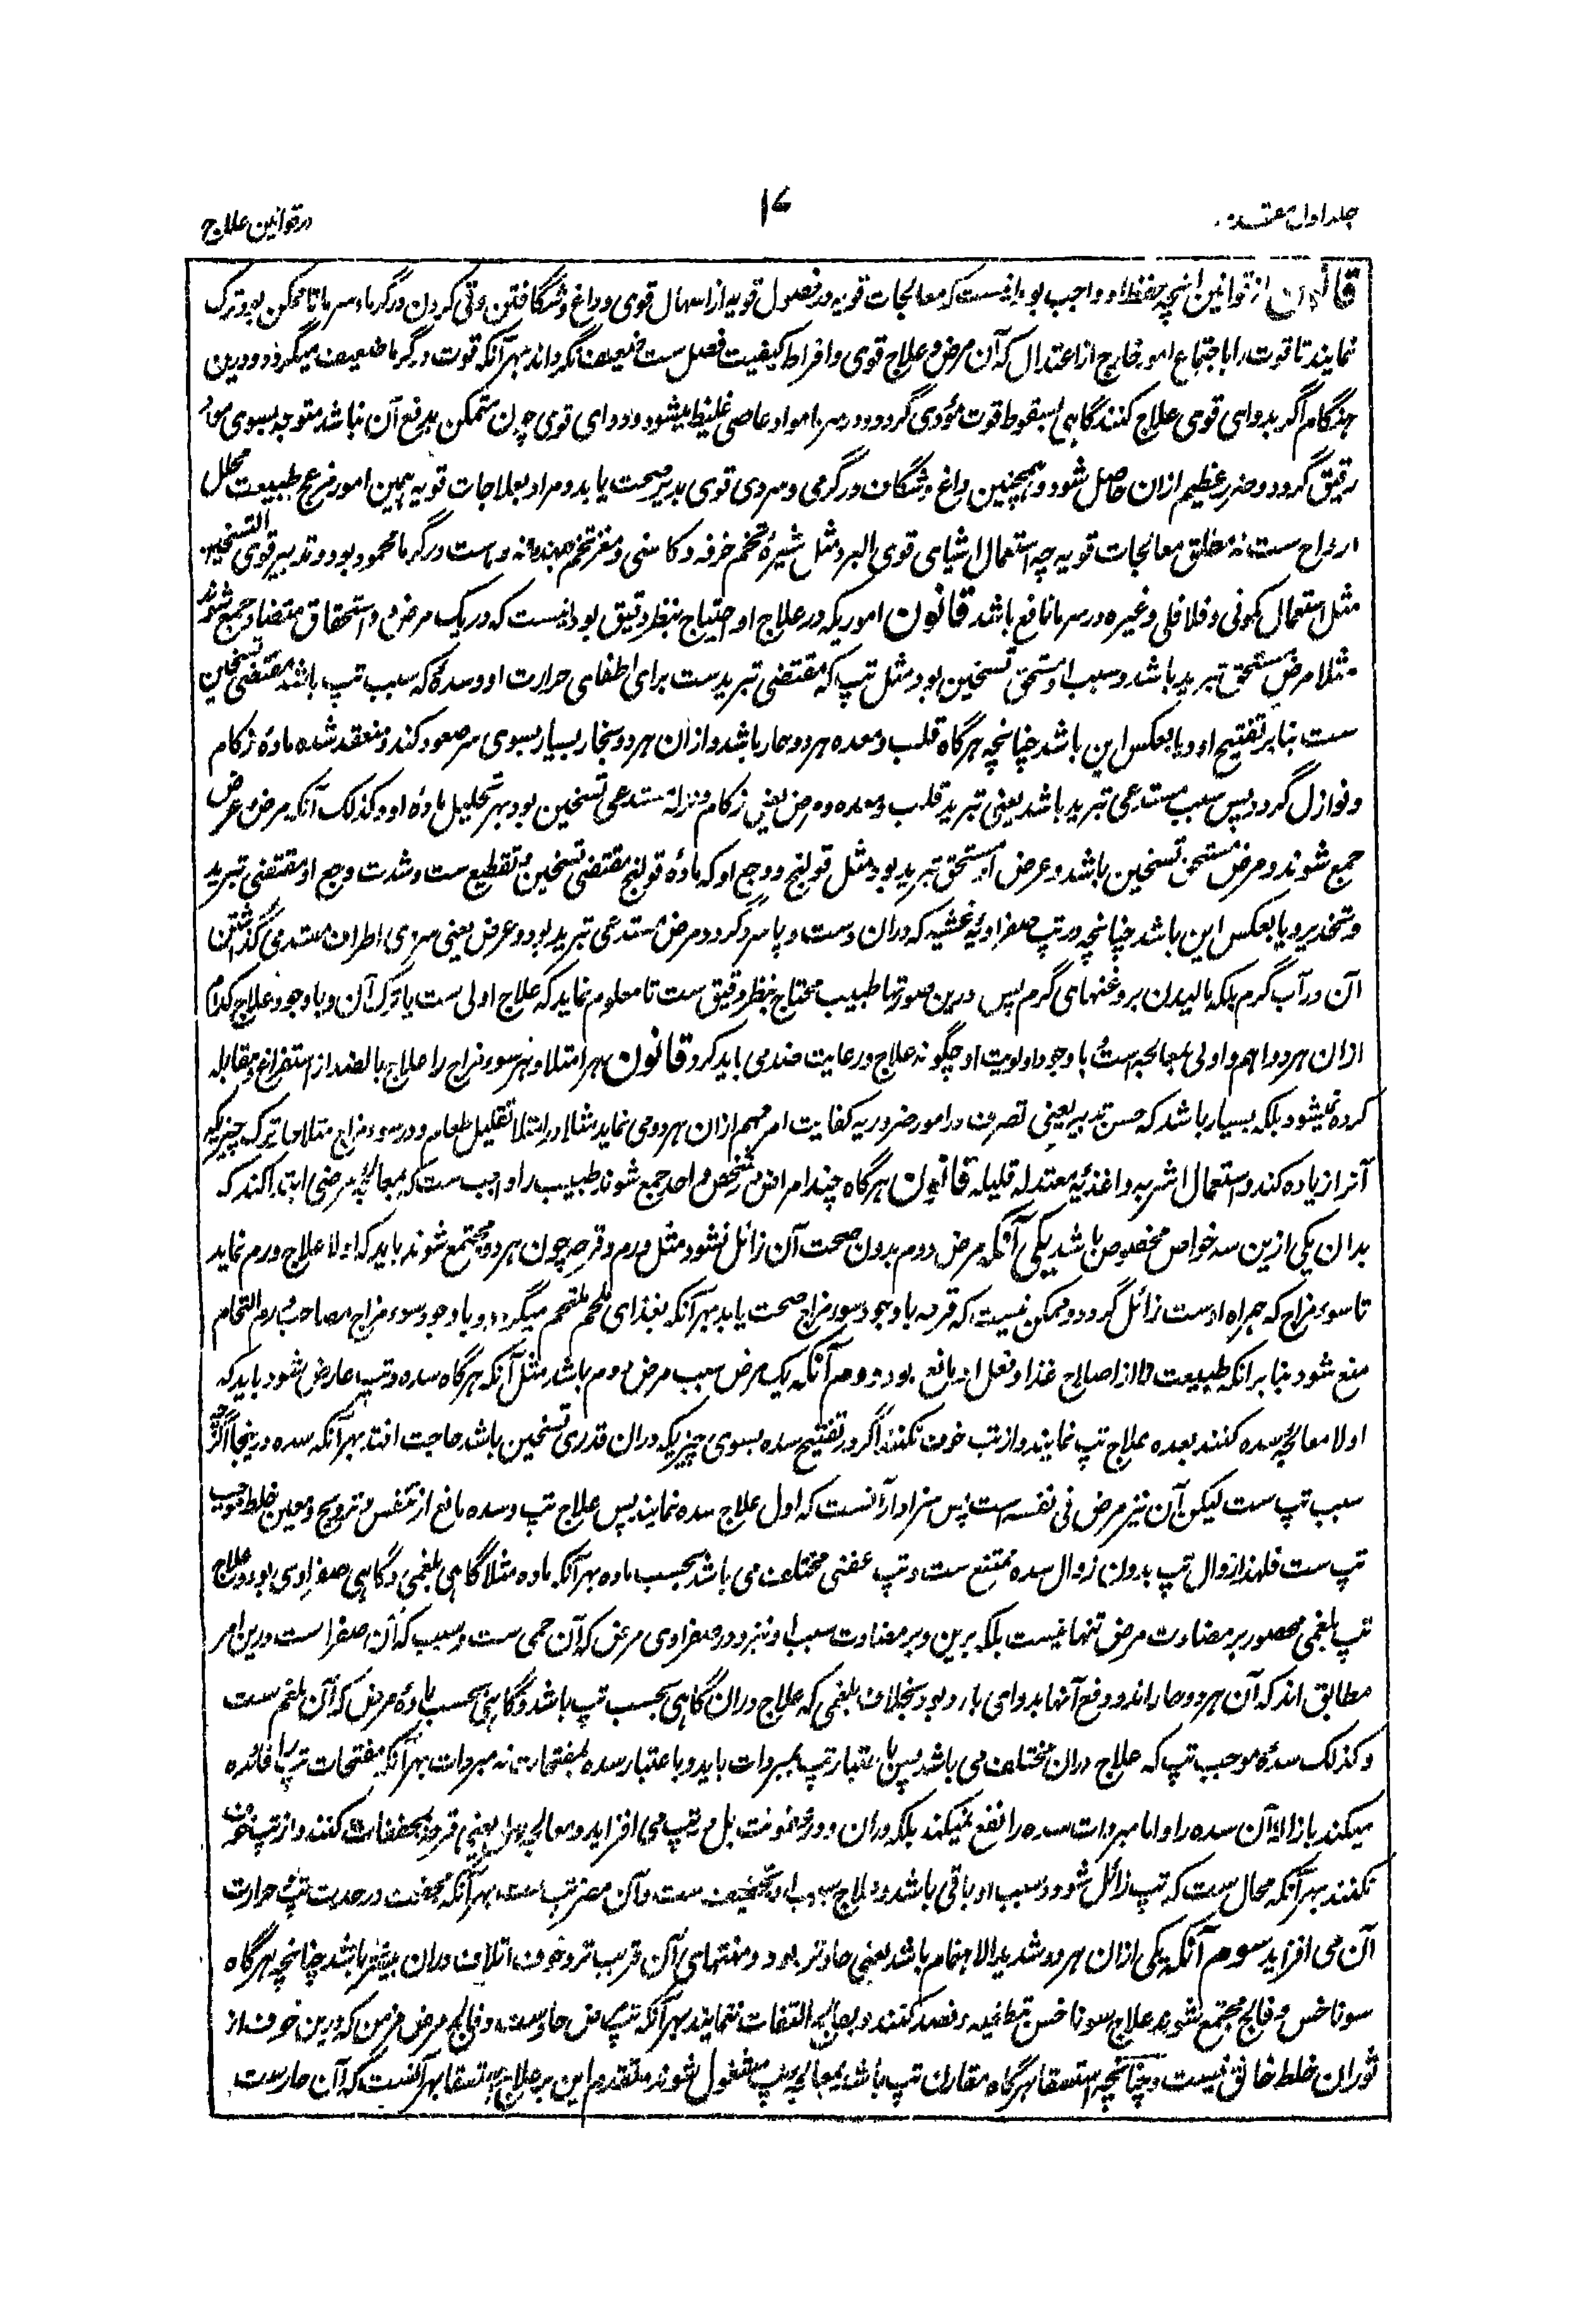 جلد اول مقدمه
۱۷
در قوانین علاج
قانون از قوانین انچه حفظ او واجب بود اینست که معالجات قویه در فصول قویه از اسهال قوی و داغ و شگافتن و قی کردن در گرما و سرما تا ممکن بود ترک
نمایند تا قوت را با اجتماع امور خارج از اعتدال که آن مرض و علاج قوی و افراط کیفیت فصل ست ضعیف نگرداند بهر آنکه قوت در گرما ضعیف میگردد و درین
هنگام اگر بدوای قوی علاج کنند گاهی بسقوط قوت مؤدی گردد و در سرما مواد عاصی غلیظ میشود و دوای قوی چون متمکن بدفع آن نباشد متوجه بسوی مواد
رقیق گردد و ضرر عظیم ازان حاصل شود و همچنین داغ و شگاف در گرمی و سردی قوی بدیر صحت یابد و مراد بعلاجات قویه همین امور مزعج طبیعت محلل
ارواح ست نه مطلق معالجات قویه چه استعمال اشیای قوی البرد مثل شیرۀ تخم خرفه و کاسنی و مغز تخم هندوانه و ماست در گرما محمود بود و تدبیر قوی التسخین
مثل استعمال کمونی و فلافلی و غیره در سرما نافع باشد قانون اموریکه در علاج او احتیاج بنظر دقیق بود اینست که در یک مرض دو استحقاق متضاد جمع شوند
مثلا مرض مستحق تبرید باشد و سبب او مستحق تسخین بود مثل تپ که مقتضی تبریدست برای اطفای حرارت او و سدۀ که سبب تپ باشد مقتضی تسخین
ست بنابر تفتیح او و یا بعکس این باشد چنانچه هرگاه قلب و معده هر دو حار باشد و ازان هر دو بخار بسیار بسوی سر صعود کند و منعقد شده مادۀ زکام
و نوازل گردد پس سبب مستدعی تبرید باشد یعنی تبرید قلب و معده و مرض یعنی زکام و نزله مستدعی تسخین بود بهر تحلیل مادۀ او و کذلک آنکه مرض و عرض
جمع شوند و مرض مستحق تسخین باشد و عرض او مستحق تبرید بود مثل قولنج و وجع او که مادۀ قولنج مقتضی تسخین و تقطیع ست و شدت وجع او مقتضی تبرید
و تخدیر و یا بعکس این باشد چنانچه در تپ صفراویۀ غشیه که دران دست و پا سرد گردد مرض مستدعی تبرید بود و عرض یعنی سردی اطراف مستدعی گذاشتن
آن در آب گرم بلکه مالیدن بروغنهای گرم پس درین صورتها طبیب محتاج بنظر دقیق ست تا معلوم نماید که علاج اولی ست یا ترک آن و با وجود علاج کدام
ازان هر دو اهم و اولی بمعالجه ست و با وجود اولویت او چگونه علاج و رعایت ضد می باید کرد قانون بهر امتلا و بهر سوءمزاج را علاج بالضد از استفراغ و مقابله
کرده نمیشود بلکه بسیار باشد که حسن تدبیر یعنی تصرف در امور ضروریه کفایت امر مهم ازان هر دو می نماید مثلا در امتلا تقلیل طعام و در سوءمزاج مثلا حار ترک چیزیکه
آنرا زیاده کند و استعمال اشربه و اغذیۀ معتدله قلیله قانون هرگاه چند امراض در شخص واحد جمع شوند طبیب را واجب ست که بمعالجۀ مرضی ابتدا کند که
بدان یکی ازین سه خواص مخصوص باشد یکی آنکه مرض دوم بدون صحت آن زائل نشود مثل ورم و قرحه چون هر دو مجتمع شوند باید که اولا علاج ورم نماید
تا سوءمزاج که همراه اوست زائل گردد و ممکن نیست که قرحه با وجود سوءمزاج صحت یابد بهر آنکه بغذای ملحم ملتحم میگردد و با وجود سوءمزاج مصاحب ورم التحام
منع شود بنابر آنکه طبیعت را از اصلاح غذا و فعل او مانع بود دوم آنکه یک مرض سبب مرض دوم باشد مثل آنکه هرگاه سده و تپ عارض شود باید که
اولا معالجۀ سده کنند بعده علاج تپ نمایند و از تپ خوف نکنند اگر در تفتیح سده بسوی چیزیکه دران قدری تسخین باشد حاجت افتد بهر آنکه سده درینجا اگرچه
سبب تپ ست لیکن آن نیز مرض فی نفسه ست پس سزاوار آنست که اول علاج سده نمایند پس علاج تپ و سده مانع از تنفس و ترویح و معین خلط موجب
تپ ست فلهذا زوال تپ بدون زوال سده ممتنع ست و تپ عفنی مختلف می باشد بحسب ماده بهر آنکه ماده مثلا گاهی بلغمی و گاهی صفراوی بود و علاج
تپ بلغمی محصور بر مضادت مرض تنها نیست بلکه برین و بر مضادت سبب او نیز و در صفراوی مرض که آن حمی ست و سبب که آن صفرا است درین امر
مطابق اند که آن هر دو حار اند و دفع آنها بدوای بارد بود بخلاف بلغمی که علاج دران گاهی بحسب تپ باشد و گاهی بحسب مادۀ مرض که آن بلغم ست
و کذلک سدۀ موجب تپ که علاج دران مختلف می باشد پس باعتبار تپ بمبردات باید و باعتبار سده بمفتحات نه مبردات بهر آنکه مفتحات تپ را فائده
میکند بازالۀ آن سده را و اما مبردات سده را نفع نمیکند بلکه دران و در عفونت بل در تپ می افزاید و معالجۀ سل یعنی قرحه بمجففات کنند و از تپ خوف
نکنند بهر آنکه محال ست که تپ زائل شود و سبب او باقی باشد و علاج سبب او تجفیف ست و آن مضر تپ ست بهر آنکه مجفف در حدت تپ و حرارت
آن می افزاید سوم آنکه یکی ازان هر دو شدید الاهتمام باشد یعنی حادتر بود و منتهای آن قریب تر و خوف اتلاف دران بیشتر باشد چنانچه هرگاه
سوناخس و فالج مجتمع شوند علاج سوناخس بتطفیه و فصد کنند و بفالج التفات ننمایند بهر آنکه تپ مرض حادست و فالج مرض مزمن که درین خوف از
ثوران خلط خانق نیست و چنانچه استسقا هرگاه مقارن تپ باشد بمعالجۀ تپ مشغول شوند و تقدم این بر علاج استسقا بهر آنست که آن حارست